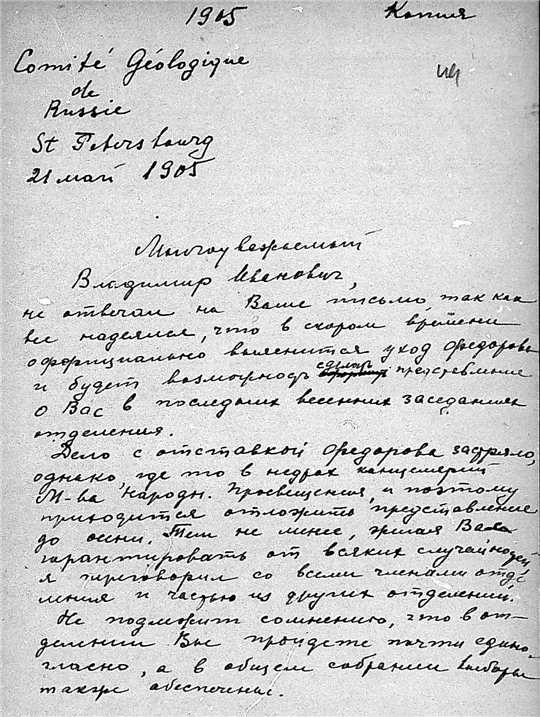 1905 Копия
Comité Géologique
de
Russie
St Petersbourg
21 май 1905
Многоуважаемый
Владимир Иванович,
не отвечал на Ваше письмо, так как
все надеялся, что в скором времени
оффициально выяснится уход Федорова
и будет возможность сделать представление
о Вас в последних весенних заседаниях
отделения.
Дело с отставкой Федорова застряло,
однако, где то в недрах канцелярий
М-ва Народн. Просвещения, и поэтому
приходится отложить представление
до осени. Тем не менее, желая Вас
гарантировать от всяких случайностей
я переговорил со всеми членами отде
ления и частью из других отделений.
Не подлежит сомнению, что в от-
делении Вы пройдете почти едино-
гласно, а в общем собрании выборы
также обеспечены.